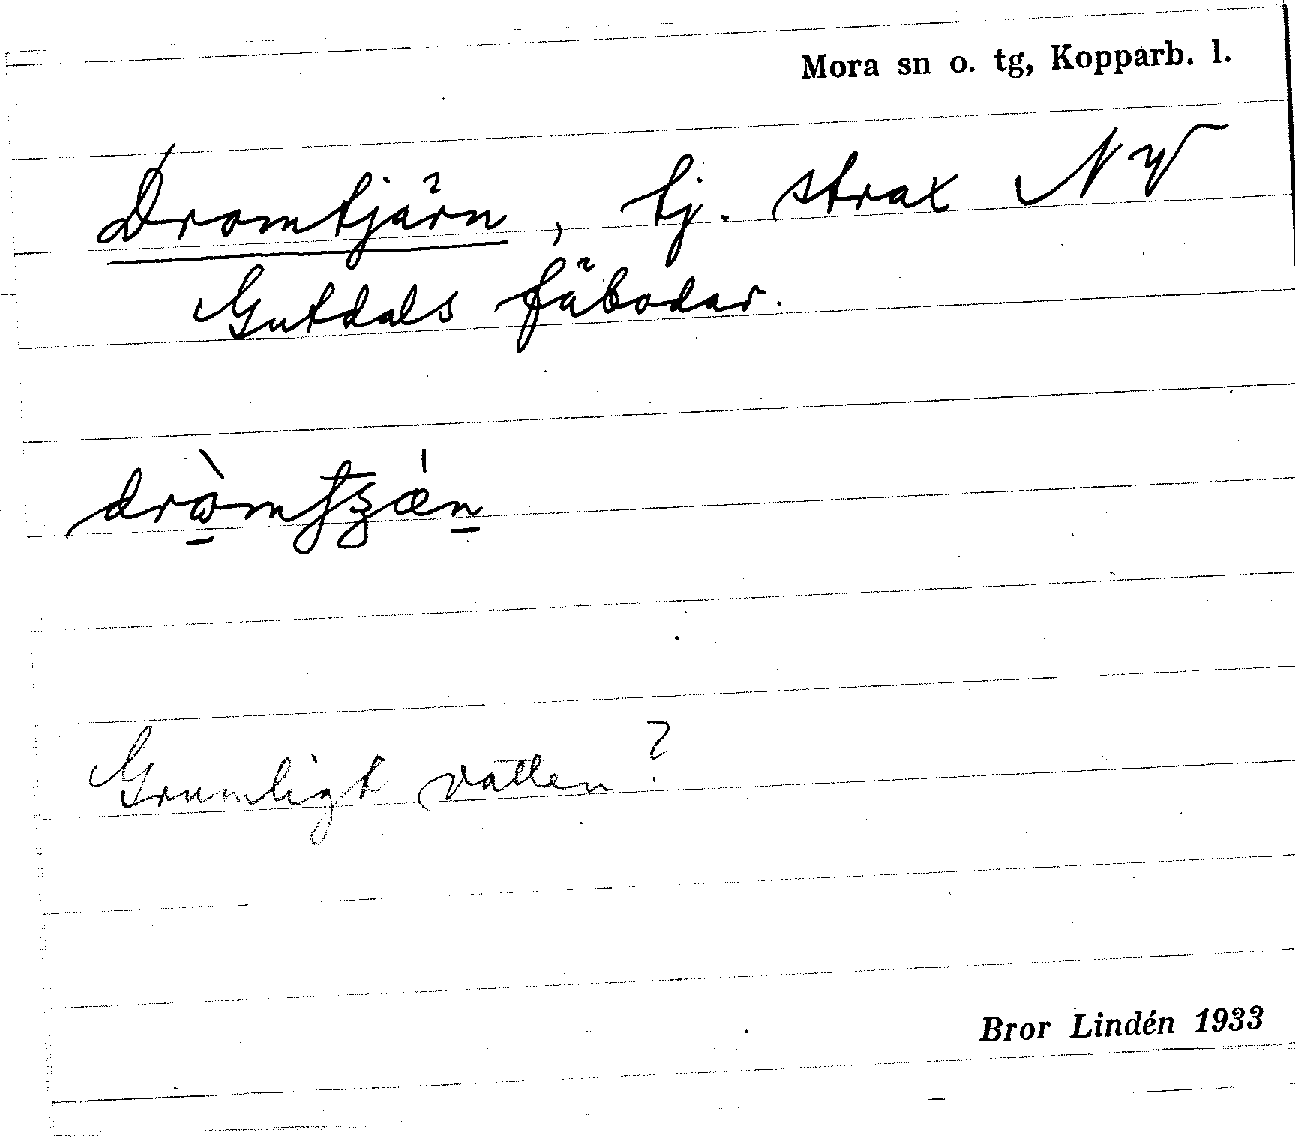 Mora sn o. tg, Kopparb. l.
Dromtjärn, tj. strax NV
Gutdals fäbodar.
Grumligt vatten?
Bror Lindén 1933